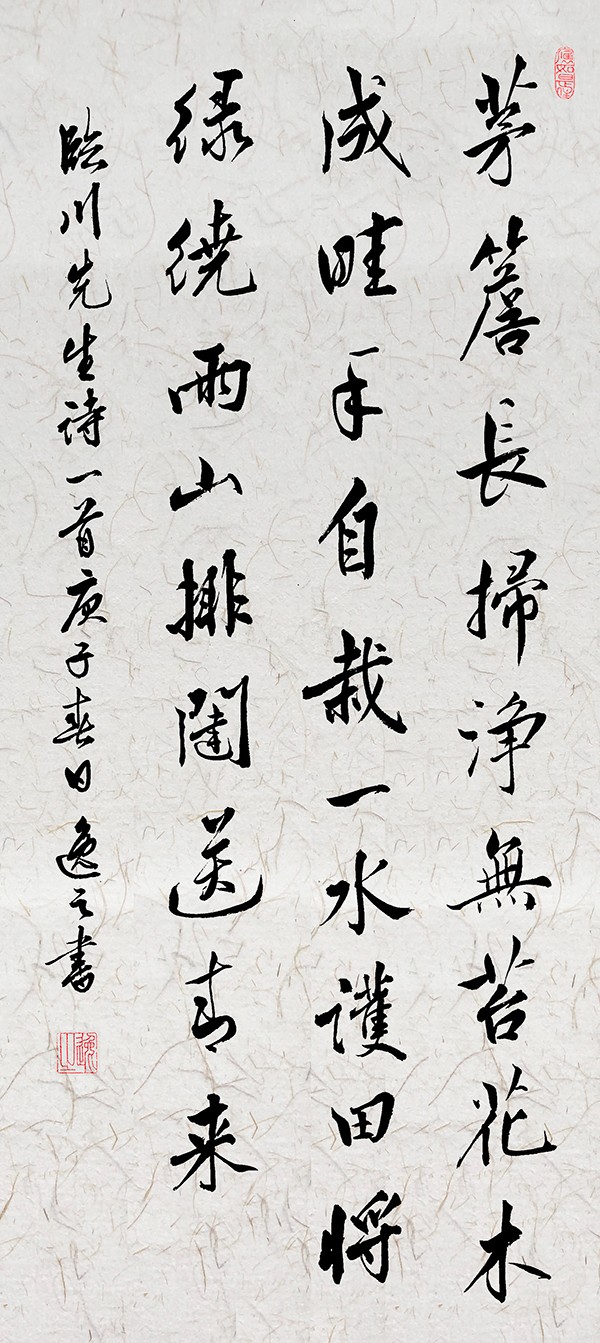 茅簷長掃浄無苔花木
成畦手自栽一水護田將
绿繞兩山排闥送青来
臨川先生诗一首庚子春日逸之書
逸之